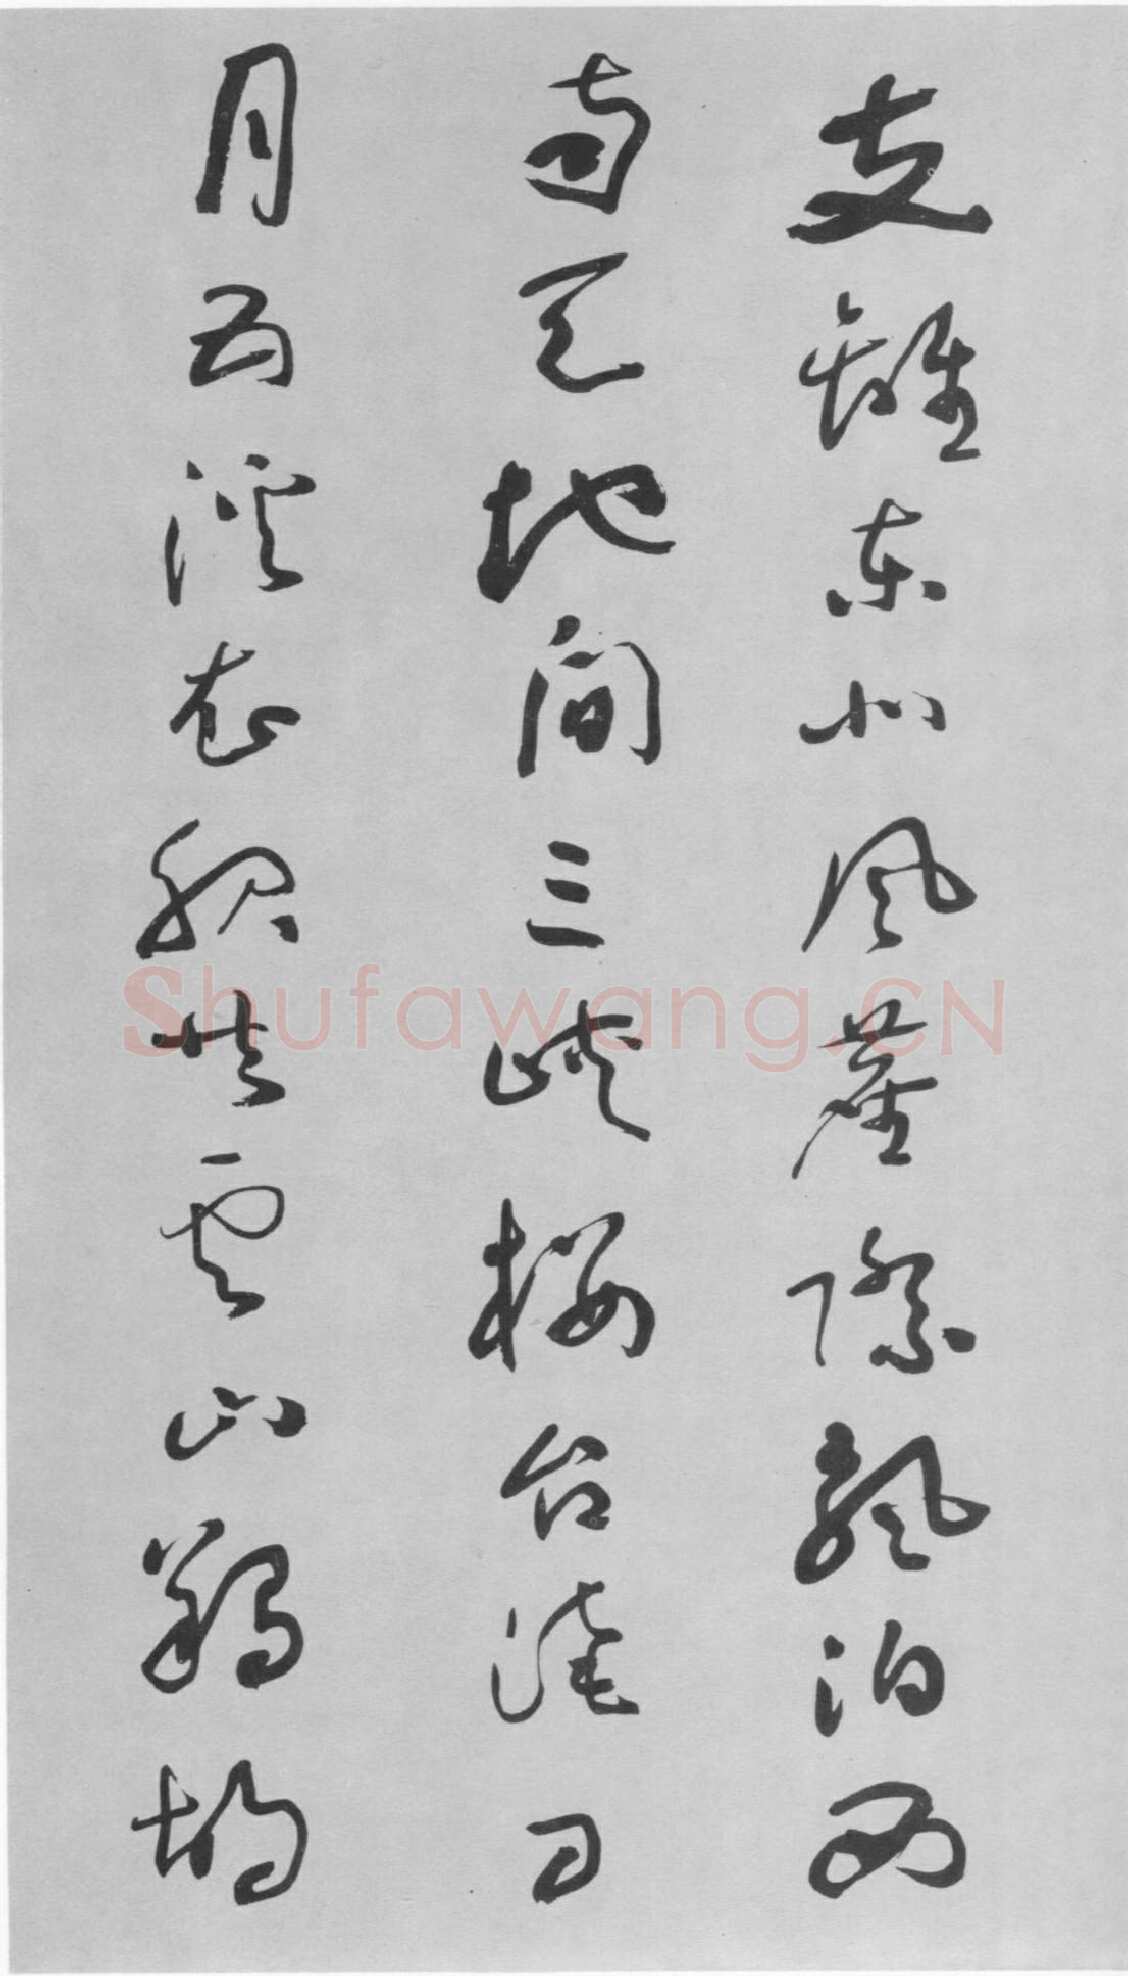 支離東北風塵際飄泊西
南天地間三峽樓台淹日
月五溪衣服共雲山羯胡
Shufawang.CN